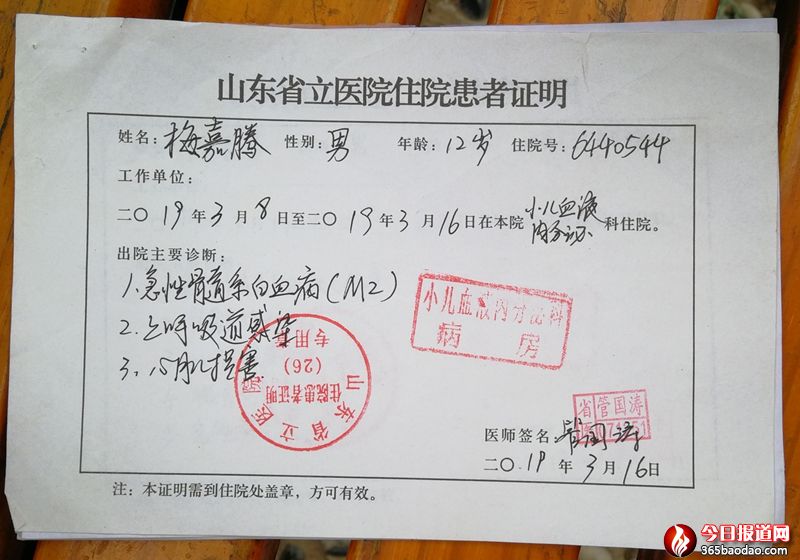 山东省立医院住院患者证明
姓名: 梅嘉腾 性别: 男 年龄: 12岁 住院号: 6440544
工作单位:
二〇19年3月8日至二〇19年3月16日在本院 小儿血液内分泌 科住院。
出院主要诊断:
1、急性骨髓系白血病(M2)
2、上呼吸道感染
3、心肌损害
小儿血液内分泌科
病房
山东省立医院
住院患者证明
(26)
专用章
省管国涛
医师签名 管国涛
二〇19年3月16日
注:本证明需到住院处盖章,方可有效。
今日报道网
365baodao.com